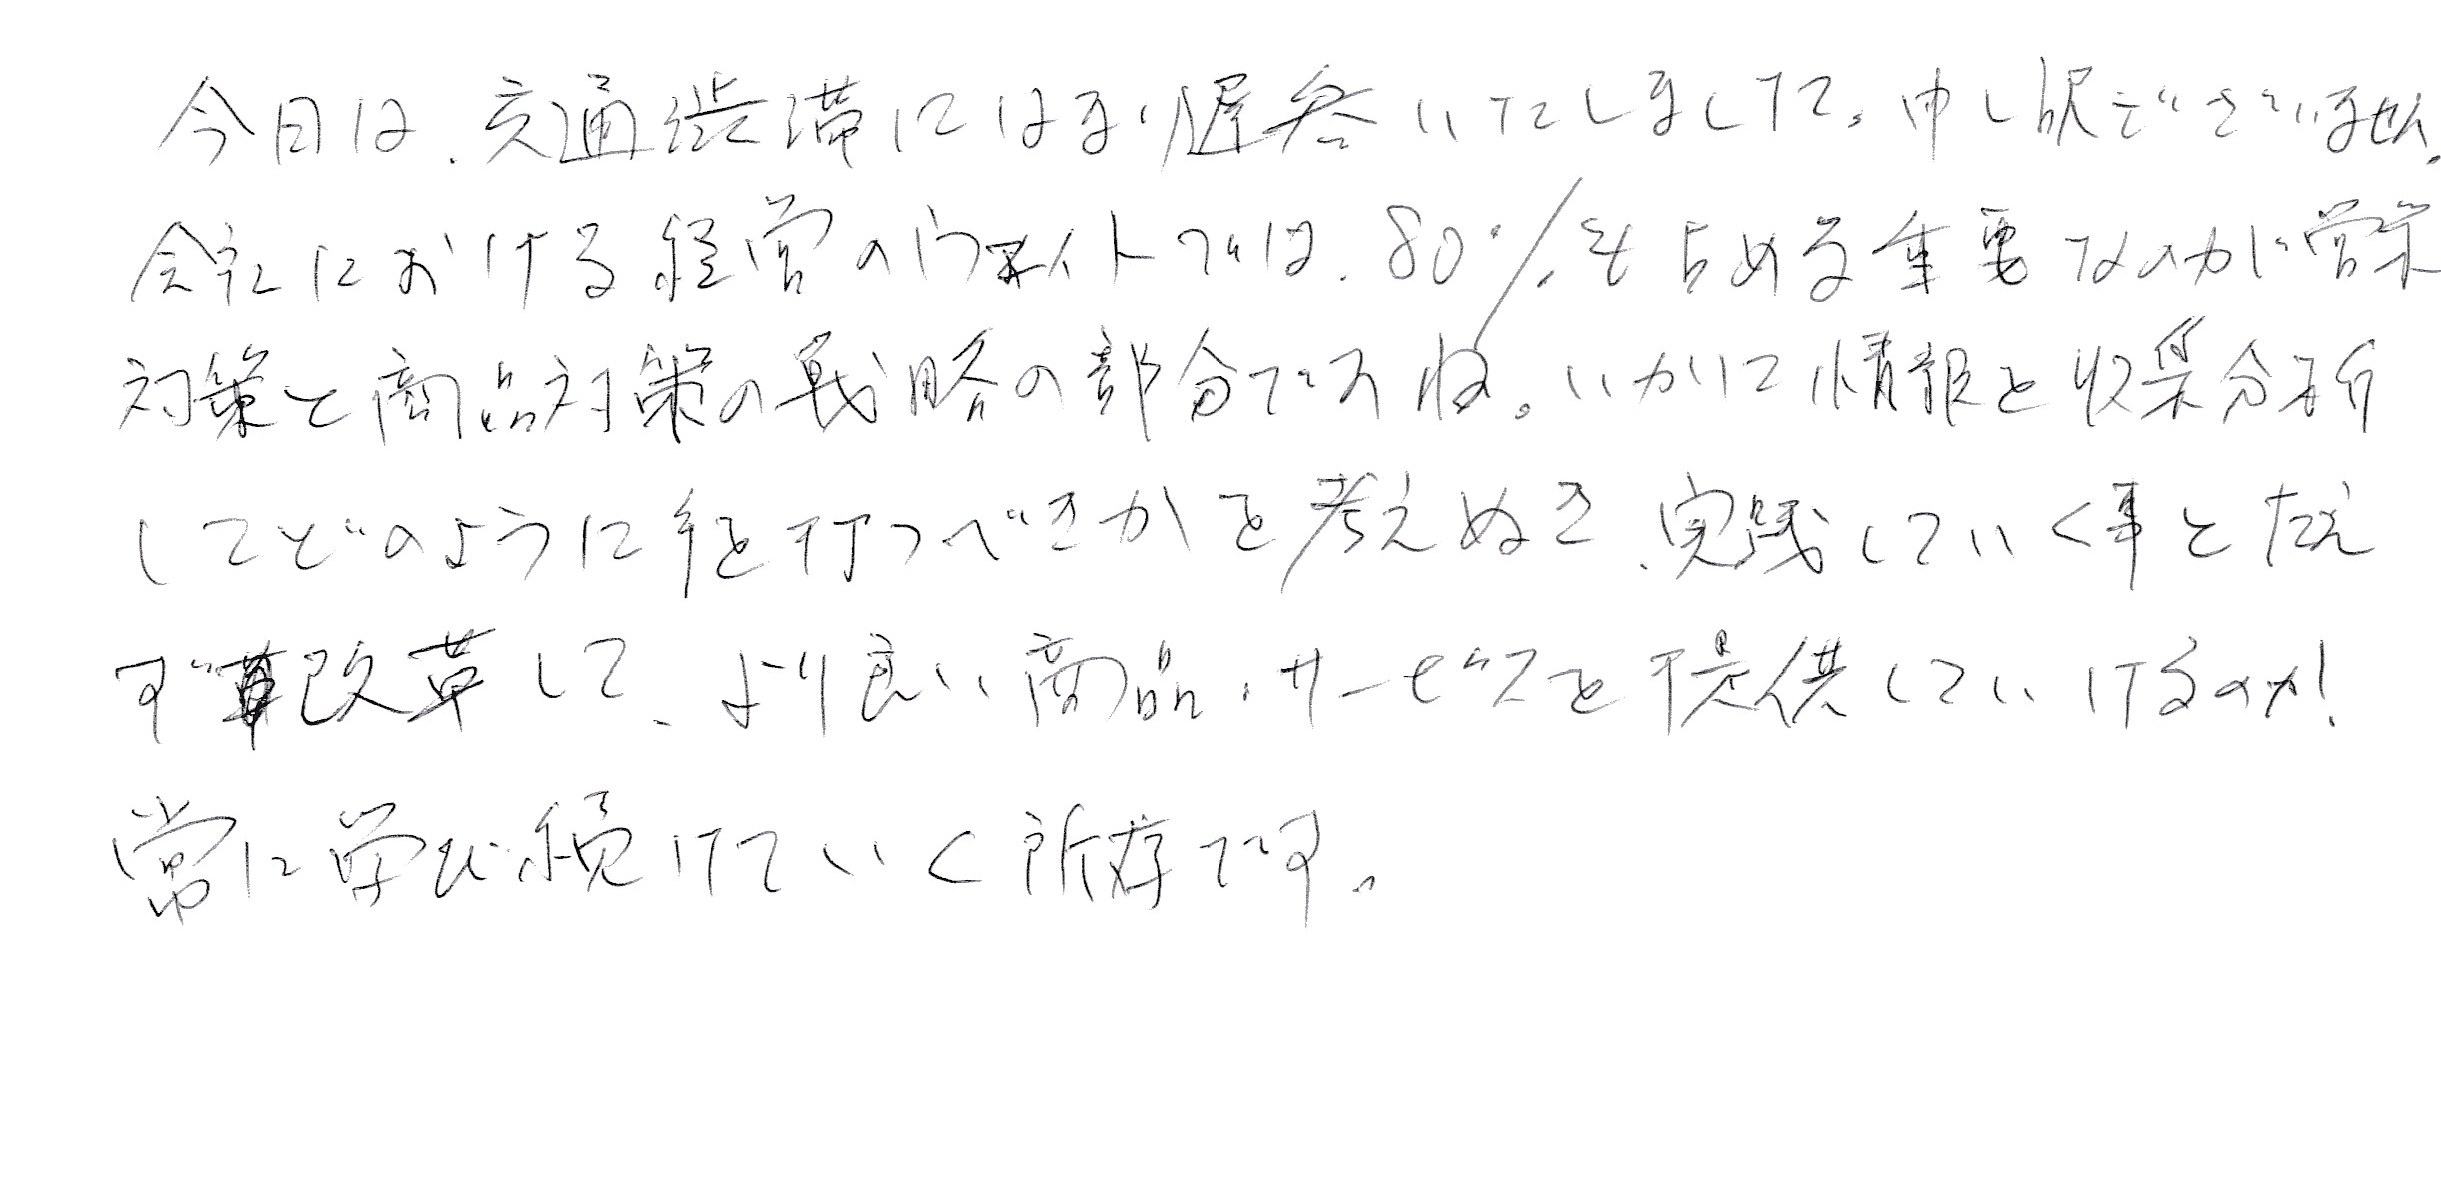 今日は、交通渋滞にはまり遅参いたしまして、申し訳ございません。
会社における経営のウェイトでは、80%を占める重要なのが営業
対策と商品対策の戦略の部分ですね。いかに情報を収集分析
してどのように手を打つべきかを考えぬき、実践していく事とたえ
ず改革して、より良い商品・サービスを提供していけるのか!
常に学び続けていく所存です。